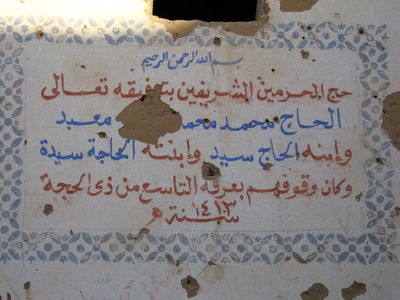 بسم الله الرحمن الرحيم
حج الحرمين الشريفين بتوفيقه تعالى
الحاج محمد محمد معبد
وابنه الحاج سيد وابنته الحاجة سيدة
وكان وقوفهم بعرفه التاسع من ذى الحجة
سنة ١٤١٣ هـ